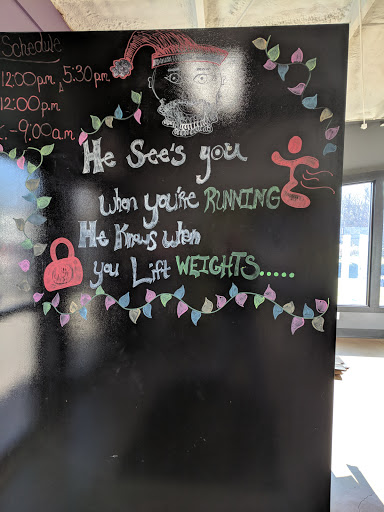 Schedule
12:00pm & 5:30pm
12:00pm
-9:00am
He See's you
when you're RUNNING
He Knows when
you Lift WEIGHTS.....